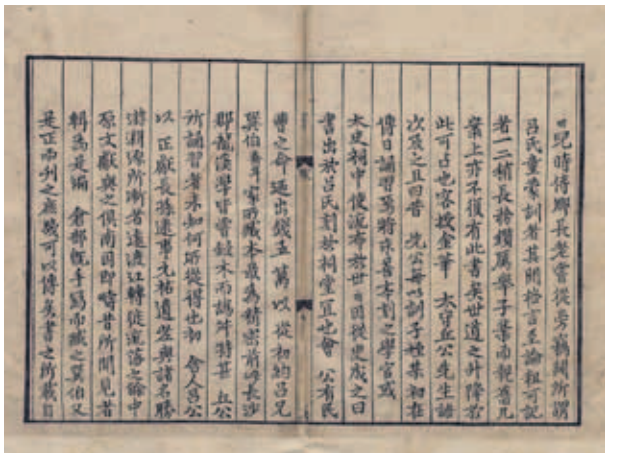 日兒時侍鄉長老嘗從旁竊聞所謂
呂氏童蒙訓者其間格言至論粗可記
者一二稍長務鑽厲舉子業而親舊几
案上亦不復有此書矣世道之升降於
此可占也客授金華 太守丘公先生語
次及之且曰昔 先公每以訓子姪某初在
傅日誦習焉將求善本刊之學官或
太史祠中使流布於世日因從臾成之曰
書出於呂氏刊於祠堂宜也會 公有民
曹之命亟出錢五萬以從初約呂兄
巽伯喬年家所藏本最為精密前此長沙
郡龍溪學皆嘗鋟木而訛舛特甚 丘公
所誦習者未知何所從傳也初 舍人呂公
以 正獻長孫逮事元祐遺老與諸名勝
游淵源所漸者遠渡江轉徙流落之餘中
原文獻與之俱南因即疇昔所聞見者
輯為是編 倉部既手寫而藏之巽伯又
是正而刊之庶幾可以傳矣書之所載自